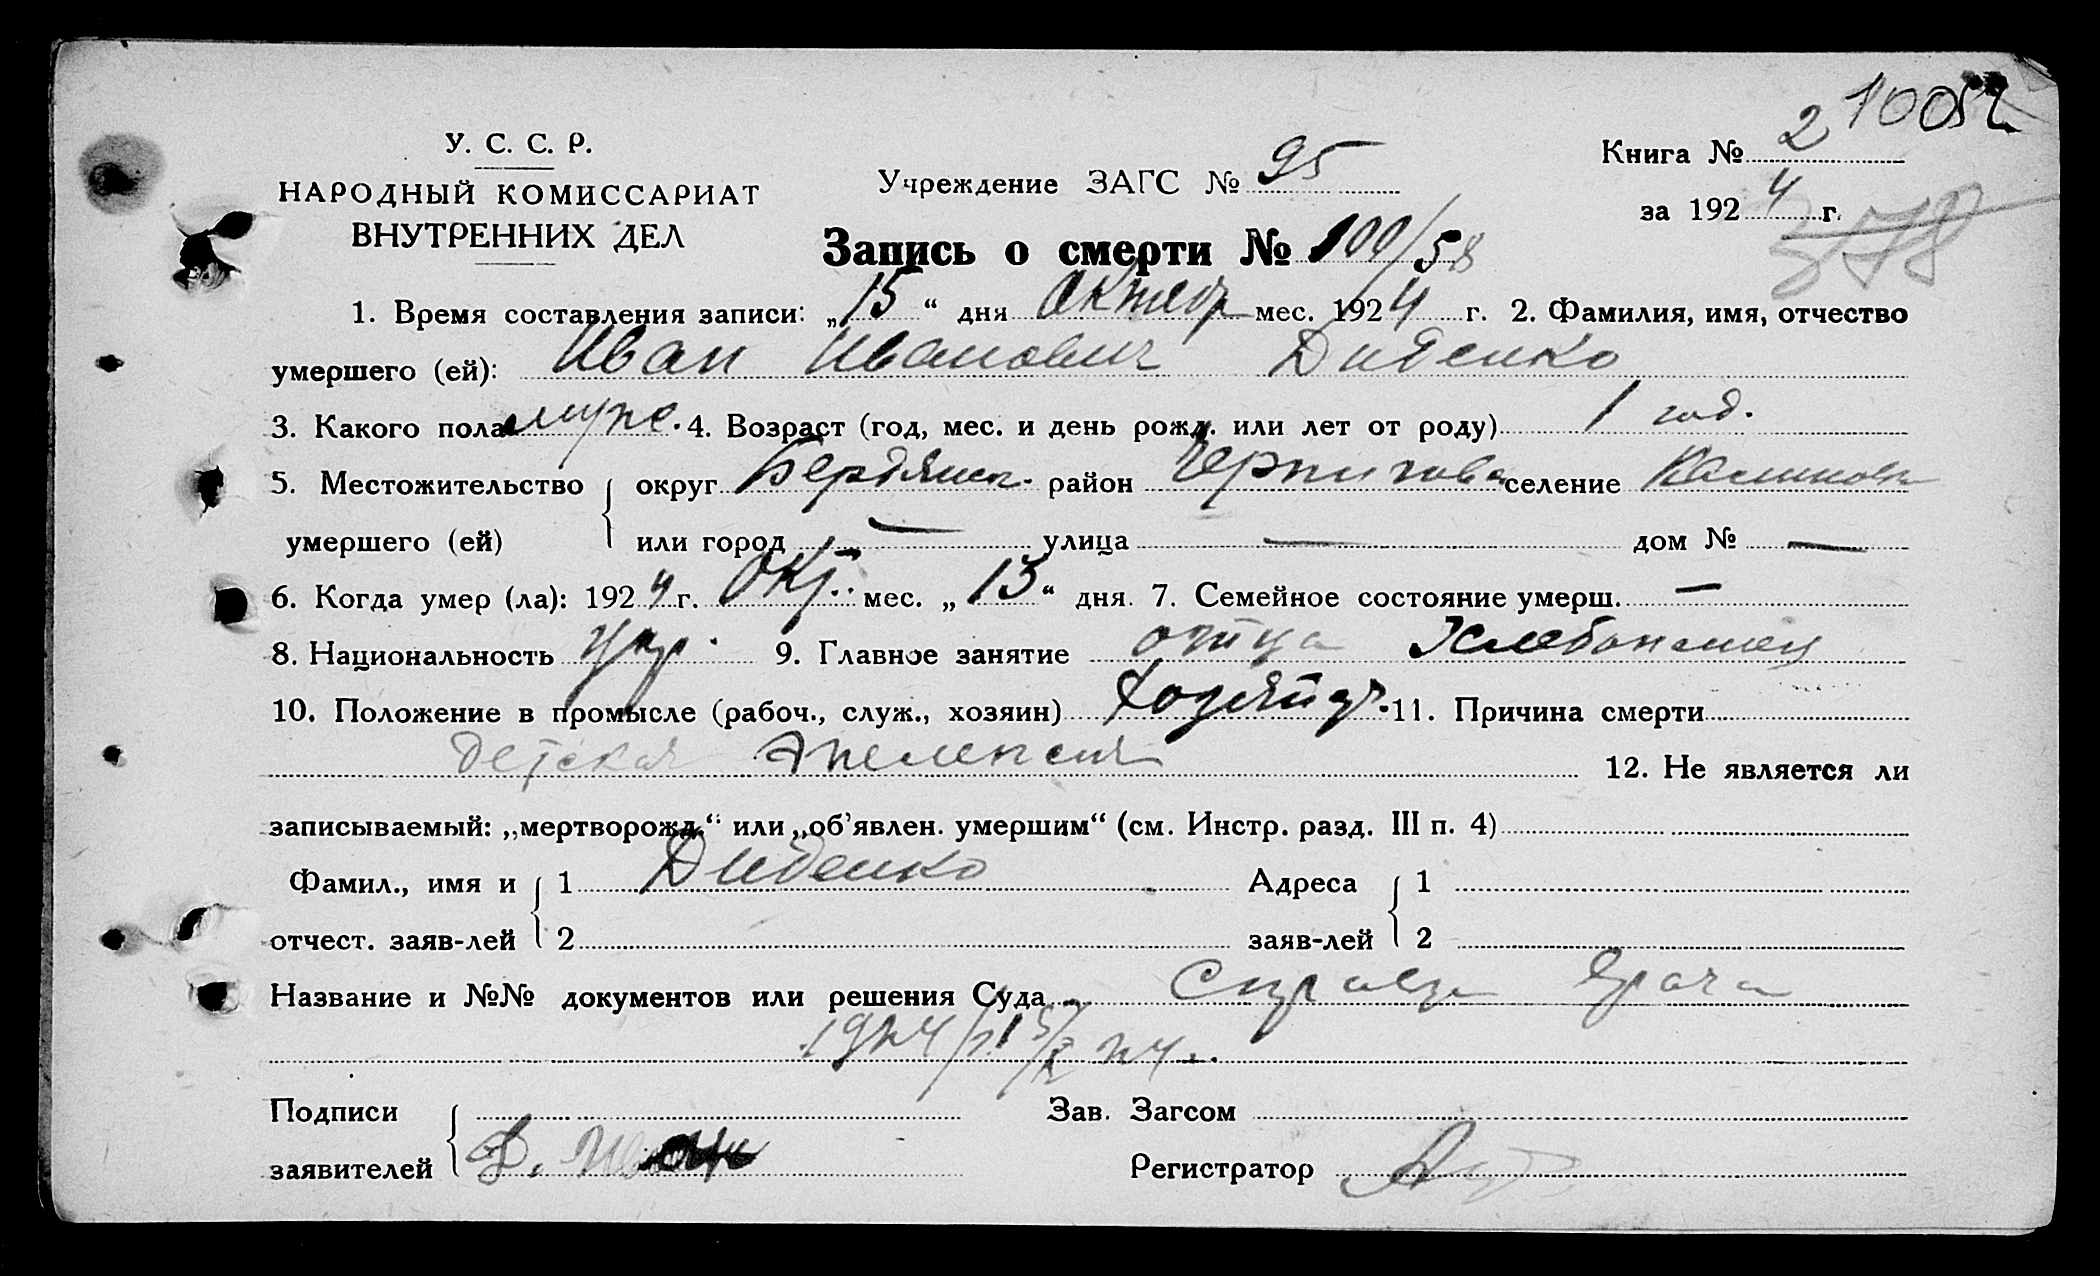 21005
У. С. С. Р.
НАРОДНЫЙ КОМИССАРИАТ
ВНУТРЕННИХ ДЕЛ
Учреждение ЗАГС № 95
Книга № 2
за 1924 г.
378
Запись о смерти № 100/58
1. Время составления записи: „15“ дня Октябр мес. 1924 г. 2. Фамилия, имя, отчество
умершего (ей): Иван Иванович Диденко
3. Какого пола муже. 4. Возраст (год, мес. и день рожд. или лет от роду) 1 год.
5. Местожительство округ Бердянск. район Чернигова селение
умершего (ей) или город — улица — дом № —
6. Когда умер (ла): 1924 г. Окт. мес. „13“ дня. 7. Семейное состояние умерш. —
8. Национальность Укр. 9. Главное занятие отца Хлебопашец
10. Положение в промысле (рабоч., служ., хозяин) 11. Причина смерти
Детская Эпелепсия 12. Не является ли
записываемый: „мертворожд.“ или „об’явлен. умершим“ (см. Инстр. разд. III п. 4)
Фамил., имя и 1 Диденко Адреса 1
отчест. заяв-лей 2 заяв-лей 2
Название и №№ документов или решения Суда Справка Врача
Подписи Зав. Загсом
заявителей Д. Иван Регистратор